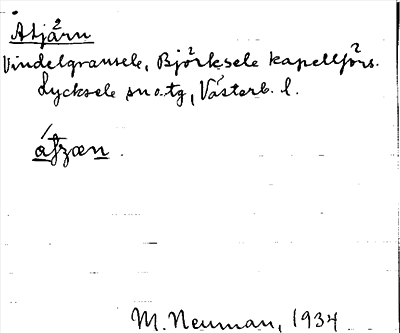 Åtjärn
Vindelgransele, Björksele kapellförs.
Lycksele sn o. tg, Västerb. l.
M. Neuman, 1934